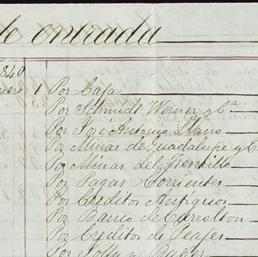 de entrada
184
nero 1 Por Caja
Por Schmidt Werner y Cª
Por José Antonio Llano
Por Minas de Guadalupe y C
Por Minas del
Por Pagas Corrientes
Por Creditos Antiguos
Por Banco de Carrolton
Por Creditos de Peajes
Por John Parker